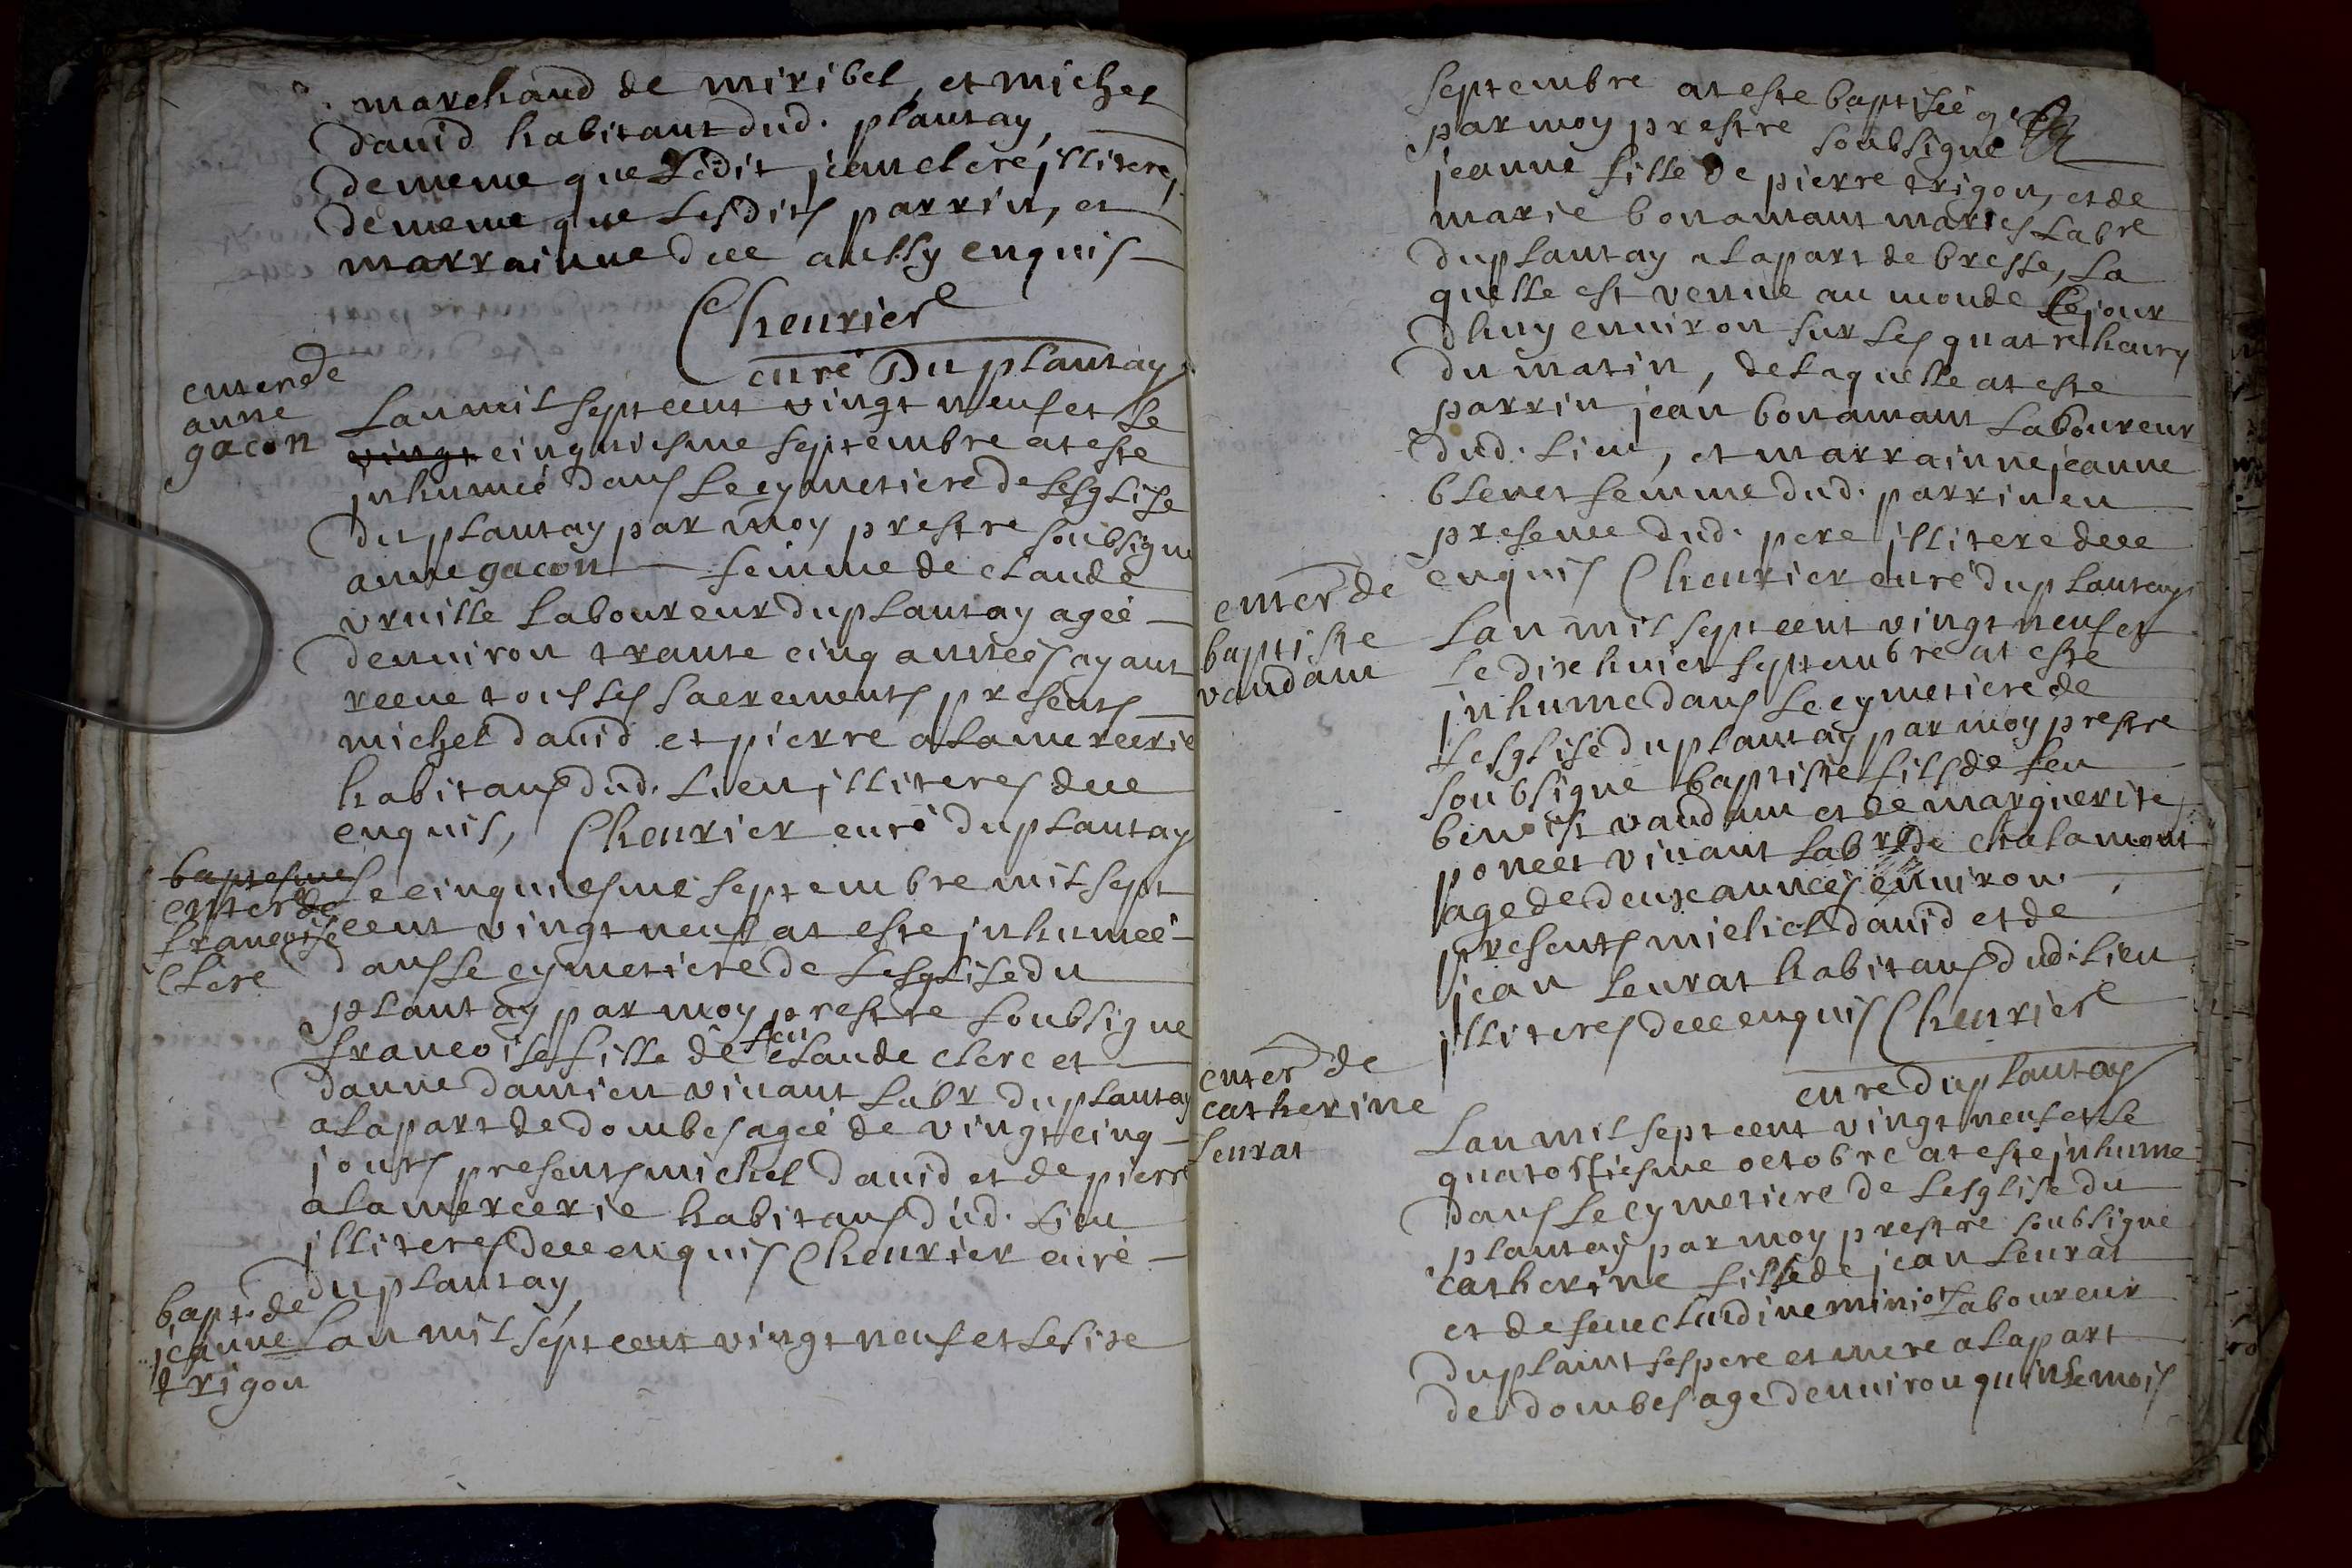 marchand de miribel, et michel
dauid habitant dud. plantay,
de meme que Ledit jean clere, jllitere,
de meme que Lesdits parrin, et
marrainne dece aussy enquis
Cheurier
curé Du plantay
enter de
anne
gacon
Lan mil sept cent vingt neuf et Le
vingt cinquiesme septembre at este
jnhumeé dans Le cymetiere de Lesglise
du plantay par moy prestre soubsigne
anne gacon femme de claude
vruille Laboureur du plantay ageé
denuiron trante cinq anneés ayant
receue tous Les sacrements presents
michel dauid et pierre alamercerie
habitans dud. Lieu jlliteres dece
enquis, Cheurier curé du plantay
baptesme
enter de
francoise
clere
Le cinquiesme septembre mil sept
cent vingt neuf at este jnhumeé
dans Le cymetiere de Lesglise du
plantay par moy prestre soubsigne
francoise fille de feu claude clere et
danne damien viuant Labr du plantay
a la part de dombes ageé de vingt cinq
jours presents michel dauid et de pierre
alamercerie habitans dud. Lieu
jlliteres dece enquis Cheurier curé
du plantay
bapt. de
jeanne
trigon
Lan mil sept cent vingt neuf et Le sixe
septembre at este baptiseé
par moy prestre soubsigne
jeanne fille de pierre trigon, et de
marie bonamant mariés Labre
du plantay a la part de bresse, La
quelle est venue au monde Le jour
dhuy enuiron sur Les quatre heurs
du matin, de Laquelle at este
parrin jean bonamant Laboureur
dud. Lieu, et marrainne jeanne
bleuet femme dud. parrin en
presence dud. pere jllitere dece
enquis Cheurier curé du plantay
enter de
baptiste
vaudam
Lan mil sept cent vingt neuf et
Le dixe huict septembre at este
jnhume dans Le cymetiere de
Lesglise du plantay par moy prestre
soubsigne baptiste fils de feu
benoist vaudam et de marguerite
poncet viuant Labr de chalamont
age de deux anneés enuiron
presents michel dauid et de
jean Leurat habitans dud. Lieu
jlliteres dece enquis Cheurier
curé du plantay
enter de
catherine
Leurat
Lan mil sept cent vingt neuf et Le
quatorsiesme octobre at este jnhume
dans Le cymetiere de Lesglise du
plantay par moy prestre soubsigne
catherine fille de jean Leurat
et de feue claudine miniot Laboureur
du plaint ses pere et mere a la part
de dombes age denuiron quinse mois